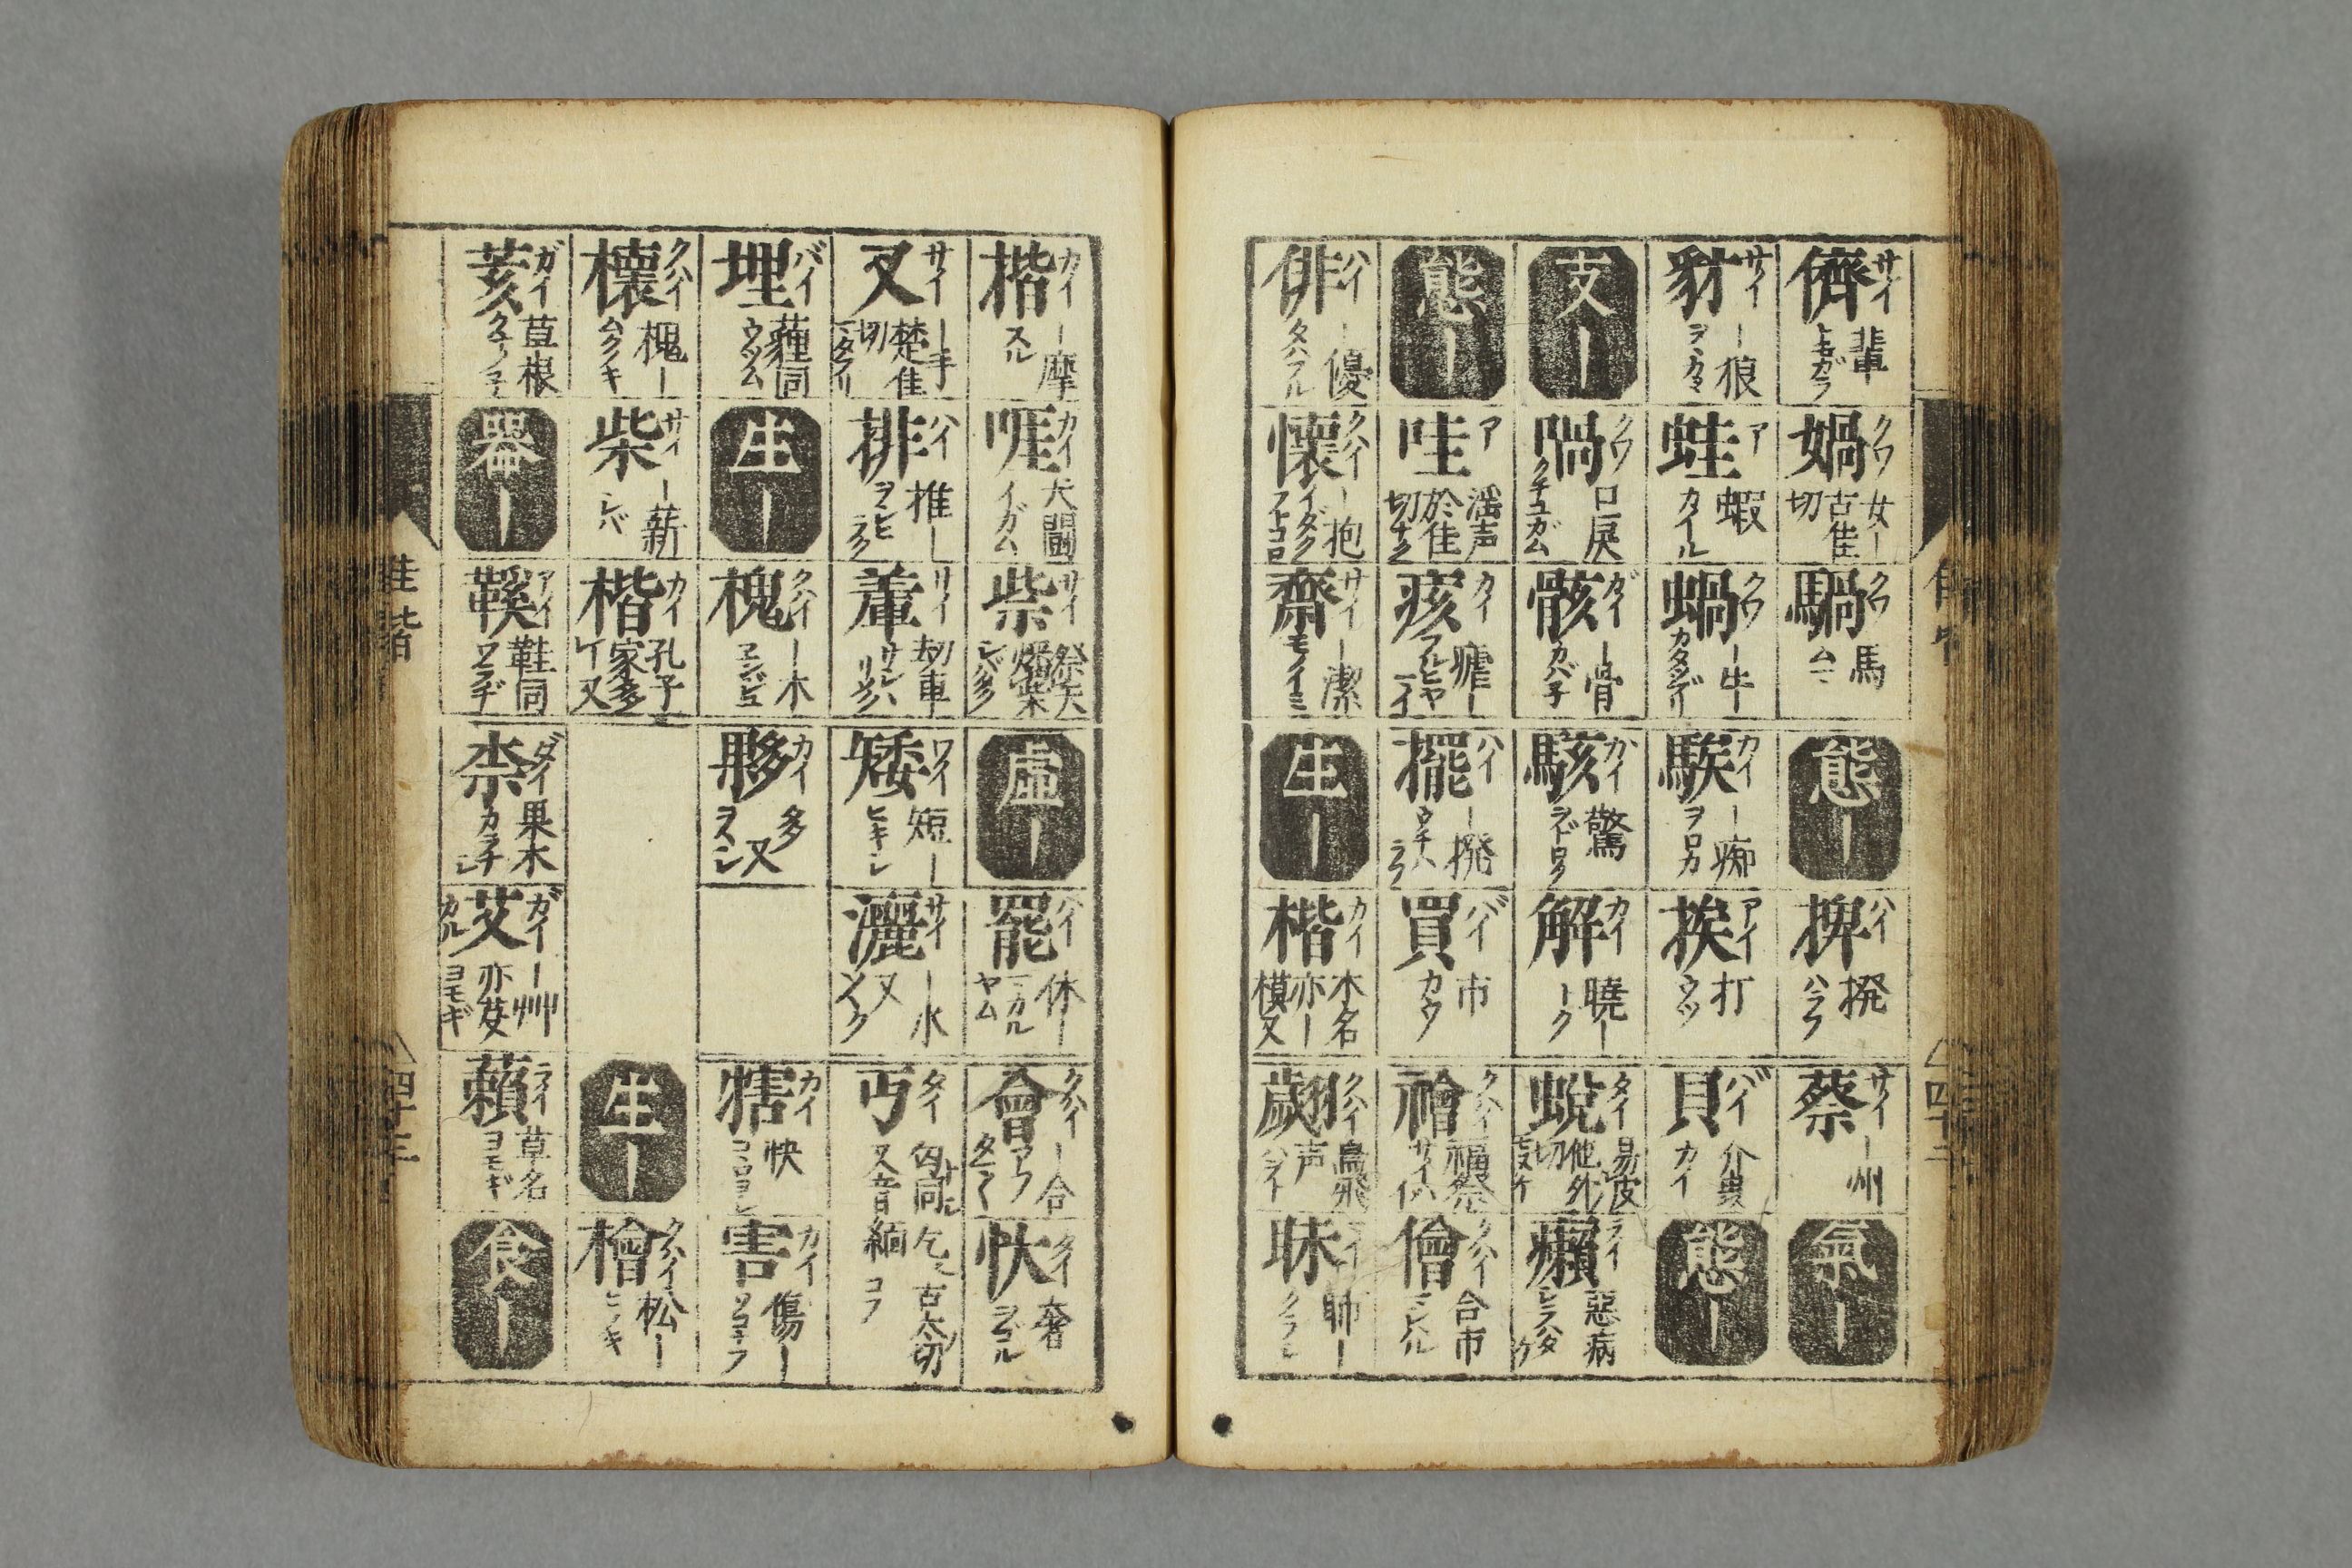 儕 サイ 輩 トモガラ
媧 クワ 女ー 古佳切
騧 クワ 馬
態ー
捭 ハイ 撥 ハラフ
蔡 サイ ー州
氣ー
豺 サイ ー狼
蛙 ア 蝦 カイル
蝸 クワ ー牛
騃 カイ ー痴 ヲロカ
挨 アイ 打 ウツ
貝 バイ 介虫 カイ
態ー
支ー
喎 クワ 口戻 クチユガム
骸 ガイ ー骨 カバ子
駭 カイ 驚 ヲドロク
解 カイ 曉ー ーク
蛻 タイ 易皮 他外切
癩 ライ 惡病
態ー
哇 ア 淫声 於佳切
痎 カイ 瘧ー
擺 ハイ ー撥
買 バイ 市 カウ
禬 クハイ 福祭
儈 クハイ 合市
俳 ハイ ー優 タハフル
懷 クハイ ー抱 イダク フトコロ
齋 サイ ー潔 モノイミ
生ー
楷 カイ 木名 亦ー模 又
翽 クハイ 鳥飛声
昧
揩 カイ ー摩 スル
啀 カイ 犬鬪 イガム
祡 サイ 祭天燔柴
虚ー
罷 ハイ 休ー ヤム
會 クハイ ー合 アフ
忕 タイ 奢 ヲゴル
叉 サイ ー手 楚佳切
排 ハイ 推ー ヲシヒラク
矮 ワイ 短ー ヒキシ
灑 サイ ー水 又 ソヽク
丐 タイ 匃同 又音緬 乞ヽ 古太切 コフ
埋 バイ 薶同 ウヅム
生ー
槐 クハイ ー木 ヱンジユ
夥 カイ 多 又 ヲヽシ
犗 カイ 快
害 カイ 傷ー ソコナフ
櫰 クハイ 槐ー ムクノキ
柴 サイ ー薪 シバ
楷 カイ 孔子家多 又
生ー
檜 クハイ 松ー ヒノキ
荄 ガイ 草根
器ー
鞵 アイ 鞋同 ワラヂ
柰 ダイ 果木
艾 ガイ ー州 ヨモギ カル
藾 ライ 草名 ヨモギ
食ー
佳 皆
四十三